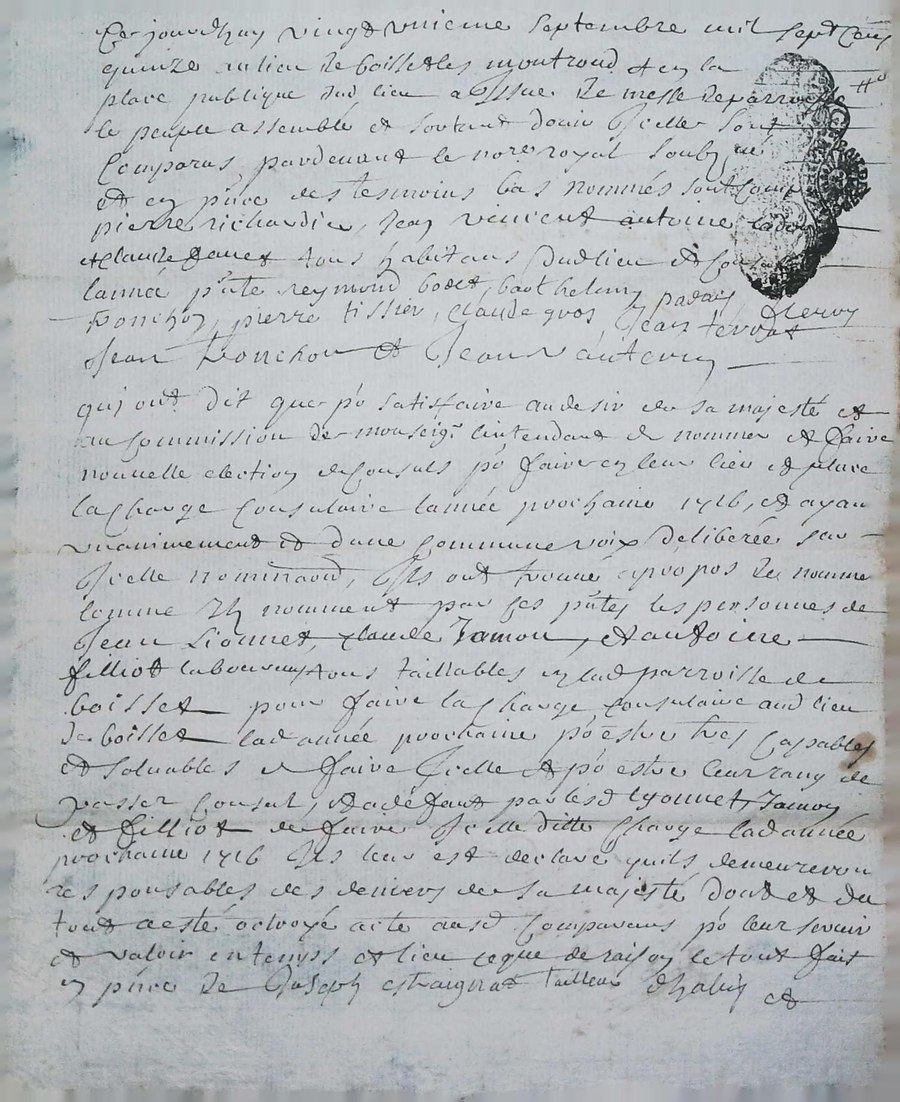 Cejourdhuy vingt unieme septembre mil sept cens
quinze au lieu de boisset les montrond et en la
place publique dud lieu a Issue de messe de parroisse
le peuple assemblé et sortant dours Icelle sont
Comparus pardevant le nore royal soubzné
et en pñce des tesmoins bas nommés
pierre richardier, Jean vincent antoine
et claude tous habitans dudlieu et
lannée pñte reymond barthelemy
ponchon, pierre tissier, claude gros, Jean
Jean ponchon et Jean
qui ont dit que po satisfaire au desir de sa majesté et
au commission de monseigr lintendant de nommer et faire
nouvelle election de Consuls po faire en leur lieu et place
la Charge Consulaire lannée prochaine 1716, et ayan
unanimement et dune commune voix deliberée sur
Icelle nominaon, Ils ont trouvé apropos de nomme
comme Ils nomment par ces pñtes les personnes de
Jean Lionnet, claude Jamon, et antoine
filliot laboureurs tous taillables en lad parroisse de
boisset pour faire la Charge Consulaire aud lieu
de boisset lad année prochaine po estre tres Capables
et soluables de faire Icelle et po estre leur rang de
passer Consul, et a defaut par lesd lyonnet, Jamon
et filliot de faire Icelle ditte Charge lad année
prochaine 1716 Ils leur est declaré quils demeureron
responsables des deniers de sa majesté dont et du
tout a esté octroyé acte ausd Comparans po leur servir
et valoir en temps et lieu ce que de raison le tout fait
en pñce de Joseph estaignat tailleur dhabits et